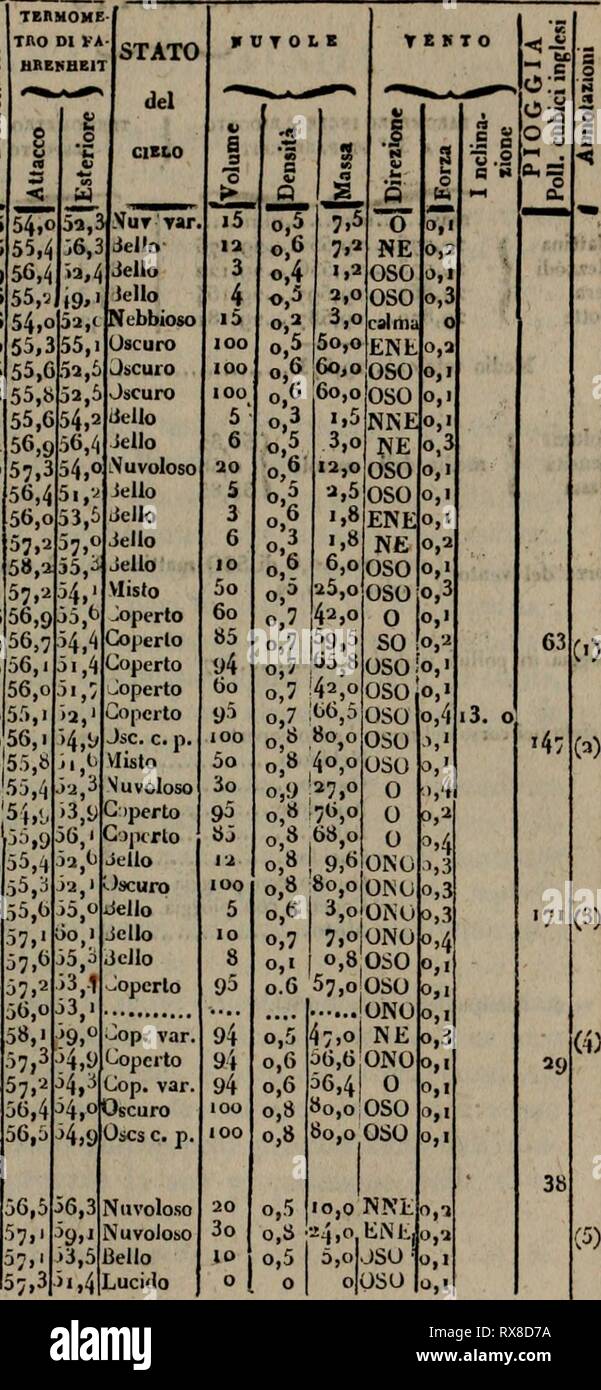 TERMOMETRO DI FAHRENHEIT
STATO del CIELO
NUVOLE
VENTO
PIOGGIA Poll. cubici inglesi
Annotazioni
Attacco Esteriore Volume Densità Massa Direzione Forza Inclinazione
54,0 52,3 Nuv var. 15 0,5 7,5 O 0,1
55,4 56,3 Bello 12 0,6 7,2 NE 0,2
56,4 52,4 Bello 3 0,4 1,2 OSO 0,1
55,2 49,1 Bello 4 0,5 2,0 OSO 0,3
54,0 52,0 Nebbioso 15 0,2 3,0 calma 0
55,3 55,1 Oscuro 100 0,5 50,0 ENE 0,2
55,6 52,5 Oscuro 100 0,6 60,0 OSO 0,1
55,8 52,5 Oscuro 100 0,6 60,0 OSO 0,1
55,6 54,2 Bello 5 0,3 1,5 NNE 0,1
56,9 56,4 Bello 6 0,5 3,0 NE 0,3
57,3 54,0 Nuvoloso 20 0,6 12,0 OSO 0,1
56,4 51,2 Bello 5 0,5 2,5 OSO 0,1
56,0 53,5 Bello 3 0,6 1,8 ENE 0,1
57,2 57,0 Bello 6 0,3 1,8 NE 0,2
58,2 55,3 Bello 10 0,6 6,0 OSO 0,1
57,2 54,1 Misto 50 0,5 25,0 OSO 0,3
56,9 55,6 Coperto 60 0,7 42,0 O 0,1
56,7 54,4 Coperto 85 0,7 59,5 SO 0,2 63 (1)
56,1 51,4 Coperto 94 0,7 65,8 OSO 0,1
56,0 51,7 Coperto 60 0,7 42,0 OSO 0,1
55,1 52,1 Coperto 95 0,7 66,5 OSO 0,4 13. 0
56,1 54,9 Osc. c. p. 100 0,8 80,0 OSO 0,1 147 (2)
55,8 51,6 Misto 50 0,8 40,0 OSO 0,1
55,4 52,3 Nuvoloso 30 0,9 27,0 O 0,4
54,9 53,9 Coperto 95 0,8 76,0 O 0,2
55,9 56,1 Coperto 85 0,8 68,0 O 0,4
55,4 52,6 Bello 12 0,8 9,6 ONO 0,3
55,3 52,1 Oscuro 100 0,8 80,0 ONO 0,3
55,6 55,0 Bello 5 0,6 3,0 ONO 0,3 171 (3)
57,1 60,1 Bello 10 0,7 7,0 ONO 0,4
57,6 55,3 Bello 8 0,1 0,8 OSO 0,1
57,2 53,1 Coperto 95 0.6 57,0 OSO 0,1
56,0 53,1 ........... .... .... ...... ONO 0,1
58,1 59,0 Cop. var. 94 0,5 47,0 NE 0,3 (4)
57,3 54,9 Coperto 94 0,6 56,6 ONO 0,1 29
57,2 54,3 Cop. var. 94 0,6 56,4 O 0,1
56,4 54,0 Oscuro 100 0,8 80,0 OSO 0,1
56,5 54,9 Oscs c. p. 100 0,8 80,0 OSO 0,1
38
56,5 56,3 Nuvoloso 20 0,5 10,0 NNE 0,2
57,1 59,1 Nuvoloso 30 0,8 24,0 ENE 0,2 (5)
57,1 53,5 Bello 10 0,5 5,0 OSO 0,1
57,3 51,4 Lucido 0 0 0 OSO 0,1
alamy
Image ID: RX8D7A
www.alamy.com